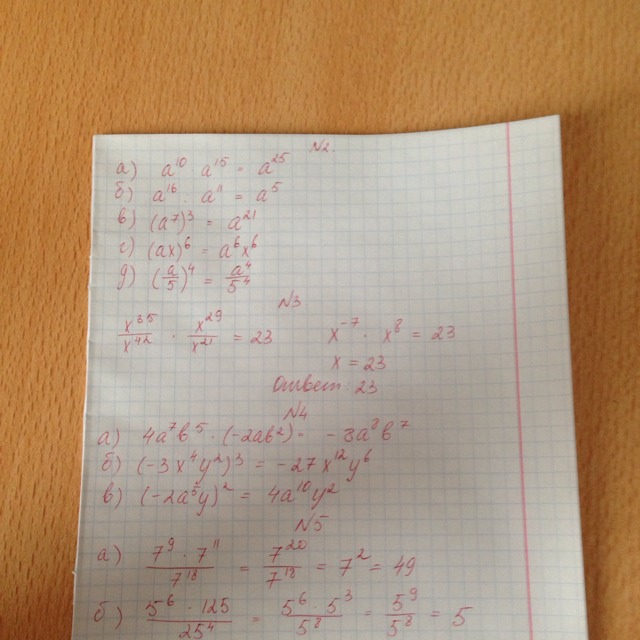 N2.
а) a¹⁰ · a¹⁵ = a²⁵
б) a¹⁶ : a¹¹ = a⁵
в) (a⁷)³ = a²¹
г) (ax)⁶ = a⁶x⁶
д) (a/5)⁴ = a⁴/5⁴
N3
x³⁵/x⁴² · x²⁹/x²¹ = 23 x⁻⁷ · x⁸ = 23
x = 23
Ответ: 23
N4
а) 4a⁷b⁵ · (-2ab²) = -8a⁸b⁷
б) (-3x⁴y²)³ = -27x¹²y⁶
в) (-2a⁵y)² = 4a¹⁰y²
N5
а) 7⁹ · 7¹¹/7¹⁸ = 7²⁰/7¹⁸ = 7² = 49
б) 5⁶ · 125/25⁴ = 5⁶ · 5³/5⁸ = 5⁹/5⁸ = 5